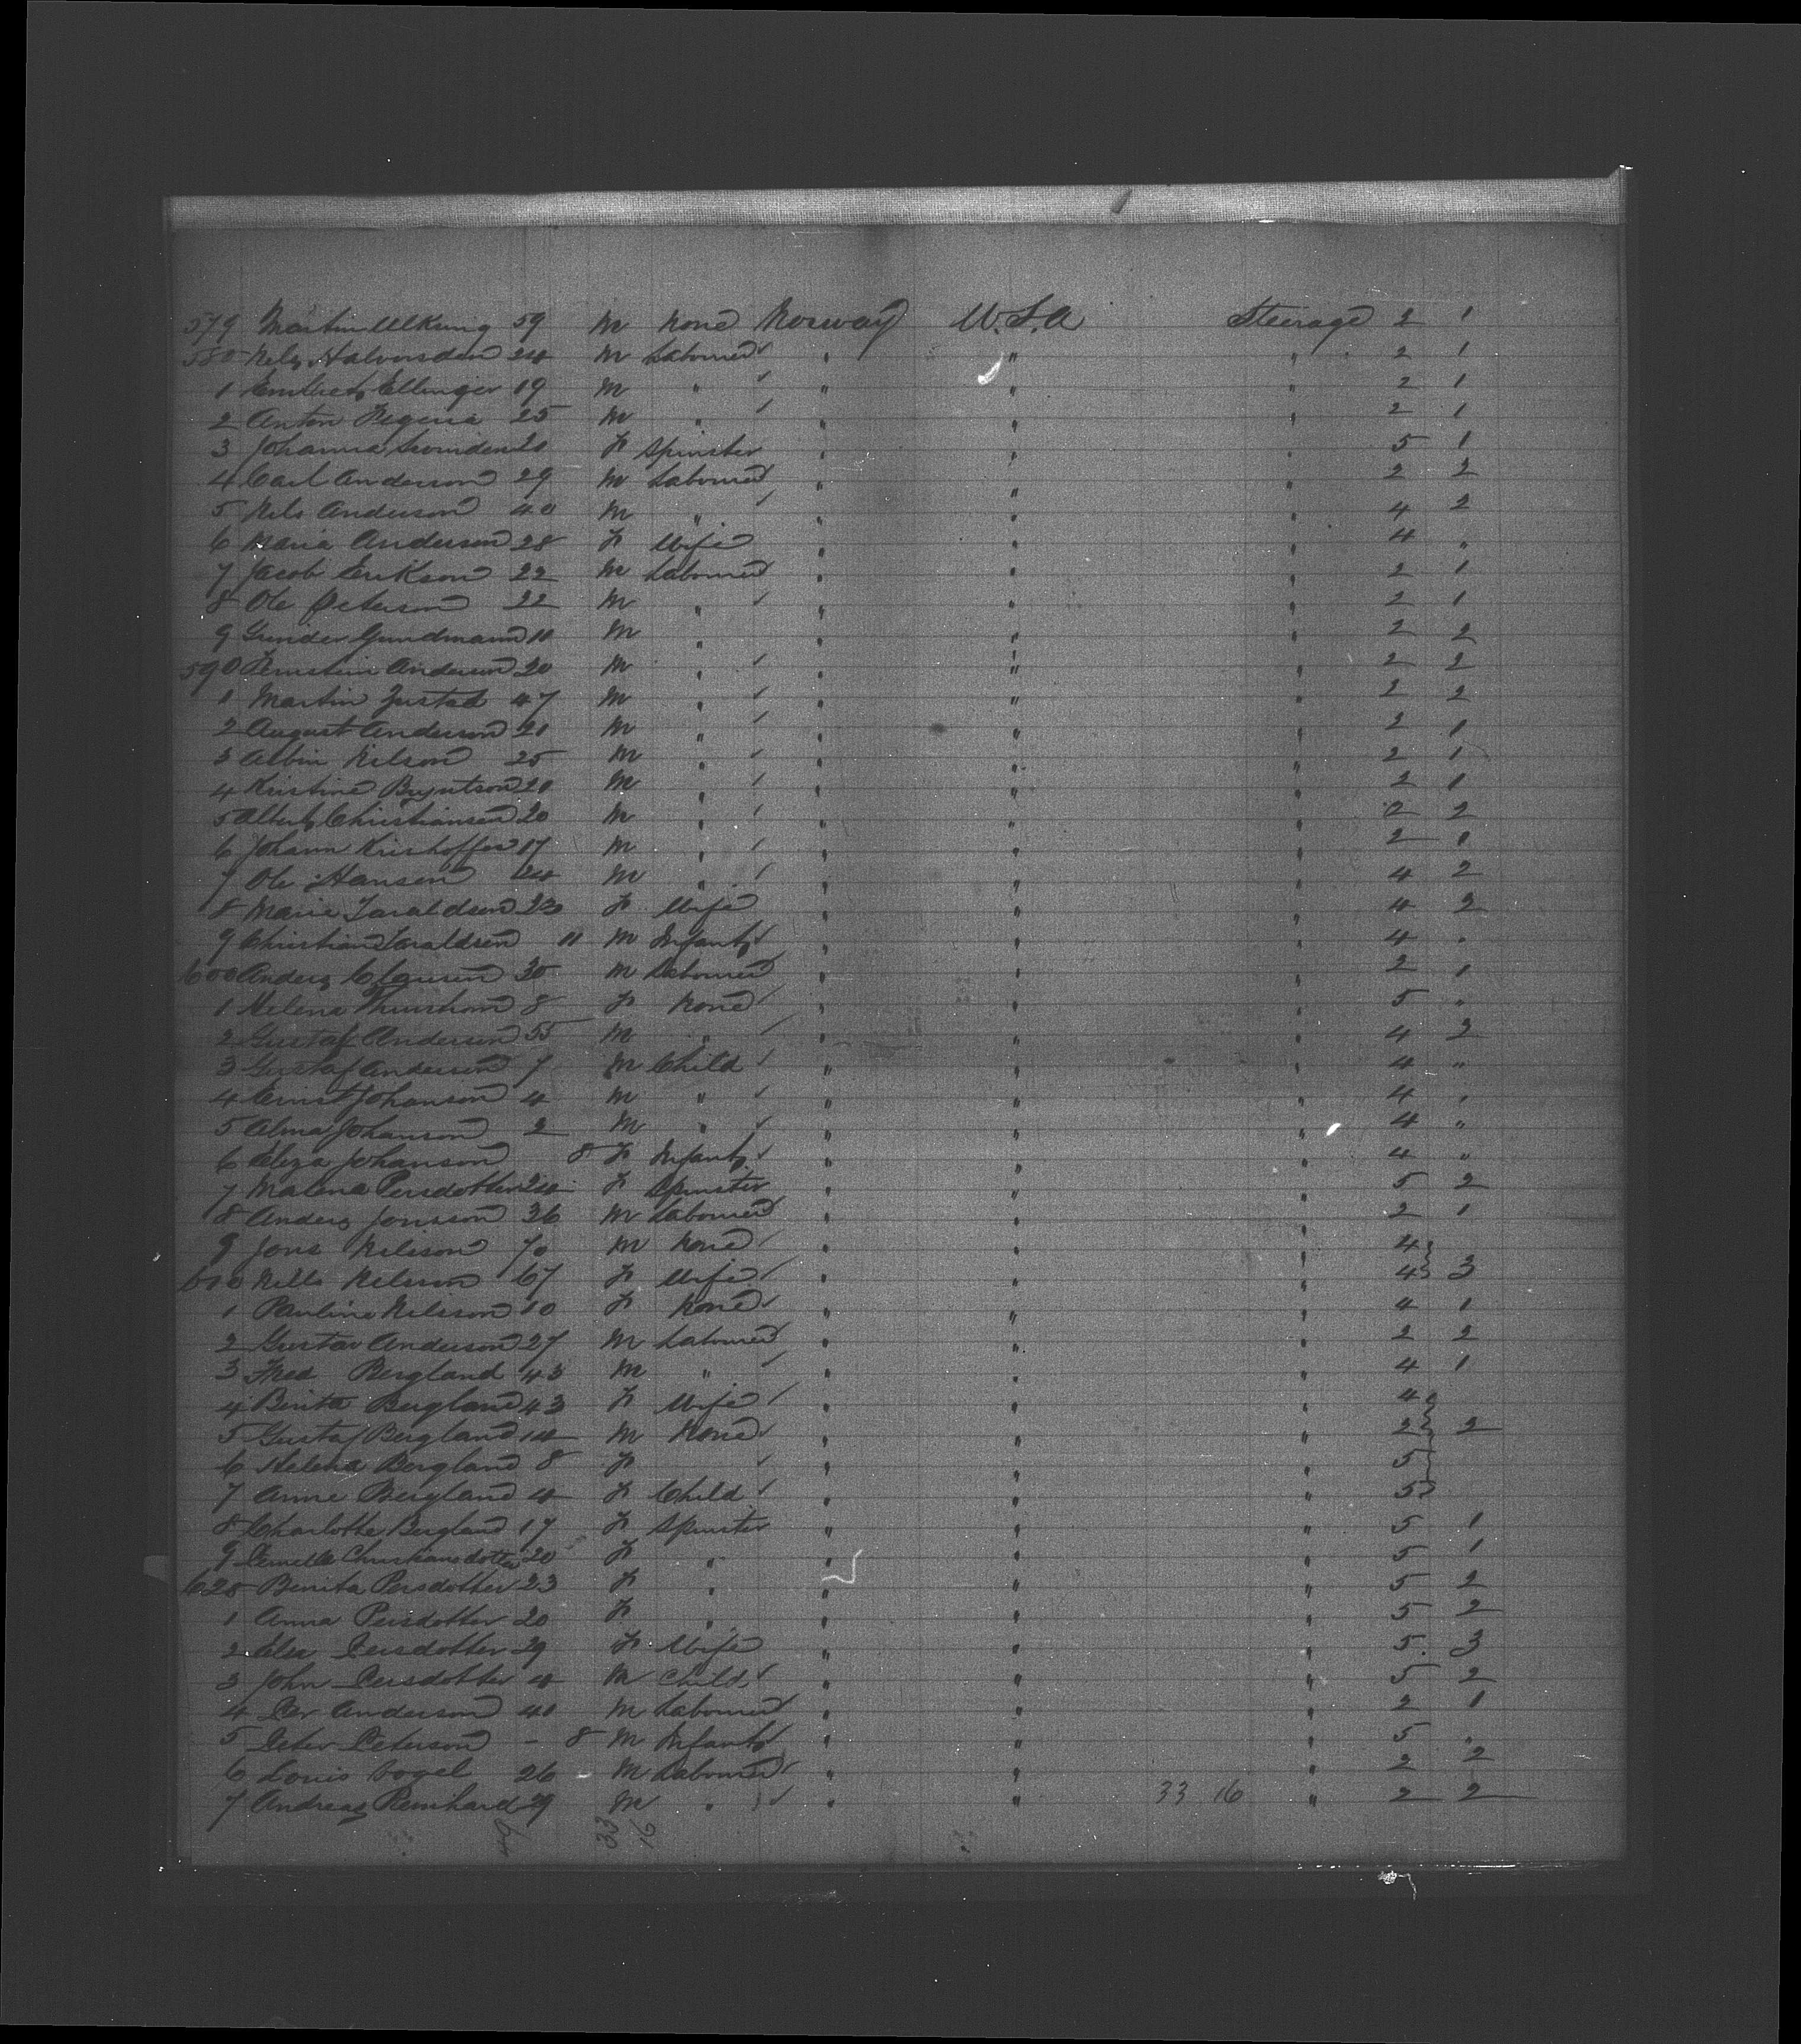 579 Martin Ulkring 59 M None Norway U.S.A Steerage 2 1
580 Nels Halvorsden 24 M Labourer " " " 2 1
1 Ellinger 19 M " " " " 2 1
2 Anton 25 M " " " " 2 1
3 Johanna 20 F Spinster " " " 5 1
4 Carl Anderson 29 M Labourer " " " 2 2
5 Nels Anderson 40 M " " " " 4 2
6 Maria Anderson 28 F Wife " " " 4 "
7 Jacob Erikson 22 M Labourer " " " 2 1
8 Ole Peterson 22 M " " " " 2 1
9 Gundmann 11 M " " " " 2 2
590 Anderson 20 M " " " " 2 2
1 Martin Justad 47 M " " " " 2 2
2 August Anderson 21 M " " " " 2 1
3 Albin Nilson 25 M " " " " 2 1
4 Kristine Bryntson 21 M " " " " 2 1
5 Albert Christiansen 20 M " " " " 2 2
6 Johann Krishoffer 17 M " " " " 2 1
7 Ole Hansen 24 M " " " " 4 2
8 Marie Taraldsen 23 F Wife " " " 4 2
9 Christian Taraldsen 11 M Infant " " " 4 "
600 Anders Clausen 30 M Labourer " " " 2 1
1 Helena 8 F None " " " 5 "
2 Gustaf Anderson 55 M " " " " 4 2
3 Gustaf Anderson 7 M Child " " " 4 "
4 Ernst Johanson 4 M " " " " 4 "
5 Alma Johanson 2 M " " " " 4 "
6 Eliza Johanson 8 F Infant " " " 4 "
7 Malena Persdotter 24 F Spinster " " " 5 2
8 Anders Jonsson 36 M Labourer " " " 2 1
9 Jons Nilsson 70 M None " " " 4
610 Nills Nilsson 67 F Wife " " " 4 3
1 Pauline Nilsson 10 F None " " " 4 1
2 Gustav Anderson 27 M Labourer " " " 2 2
3 Fred Bergland 43 M " " " " 4 1
4 Berita Bergland 43 F Wife " " " 4
5 Gustaf Bergland 14 M None " " " 2 2
6 Helena Bergland 8 F " " " 5
7 Anne Bergland 4 F Child " " " 5
8 Charlotte Bergland 17 F Spinster " " " 5 1
9 Christiansdotter 20 F " " " " 5 1
620 Benita Persdotter 23 F " " " " 5 2
1 Anna Persdotter 20 F " " " " 5 2
2 Elsa Persdotter 29 F Wife " " " 5 3
3 John Persdotter 4 M Child " " " 5 2
4 Per Anderson 40 M Labourer " " " 2 1
5 Peter Peterson - 8 M Infant " " 5 "
6 Louis Vogel 26 M Labourer " " 2 2
7 Andreas Reinhard 29 M " " " 33 16 " 2 2
33 16